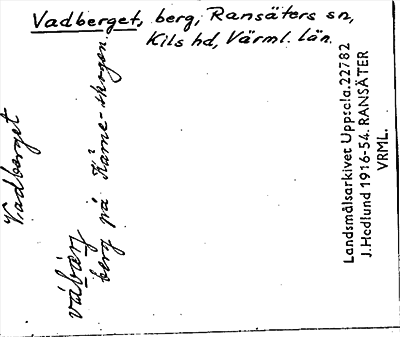 Vadberget, berg, Ransäters sn,
Kils hd, Värml. län.
Vadberget
berg på Kårne-skogen.
Landsmålsarkivet Uppsala. 22782
J. Hedlund 1916-54. RANSÄTER
VRML.